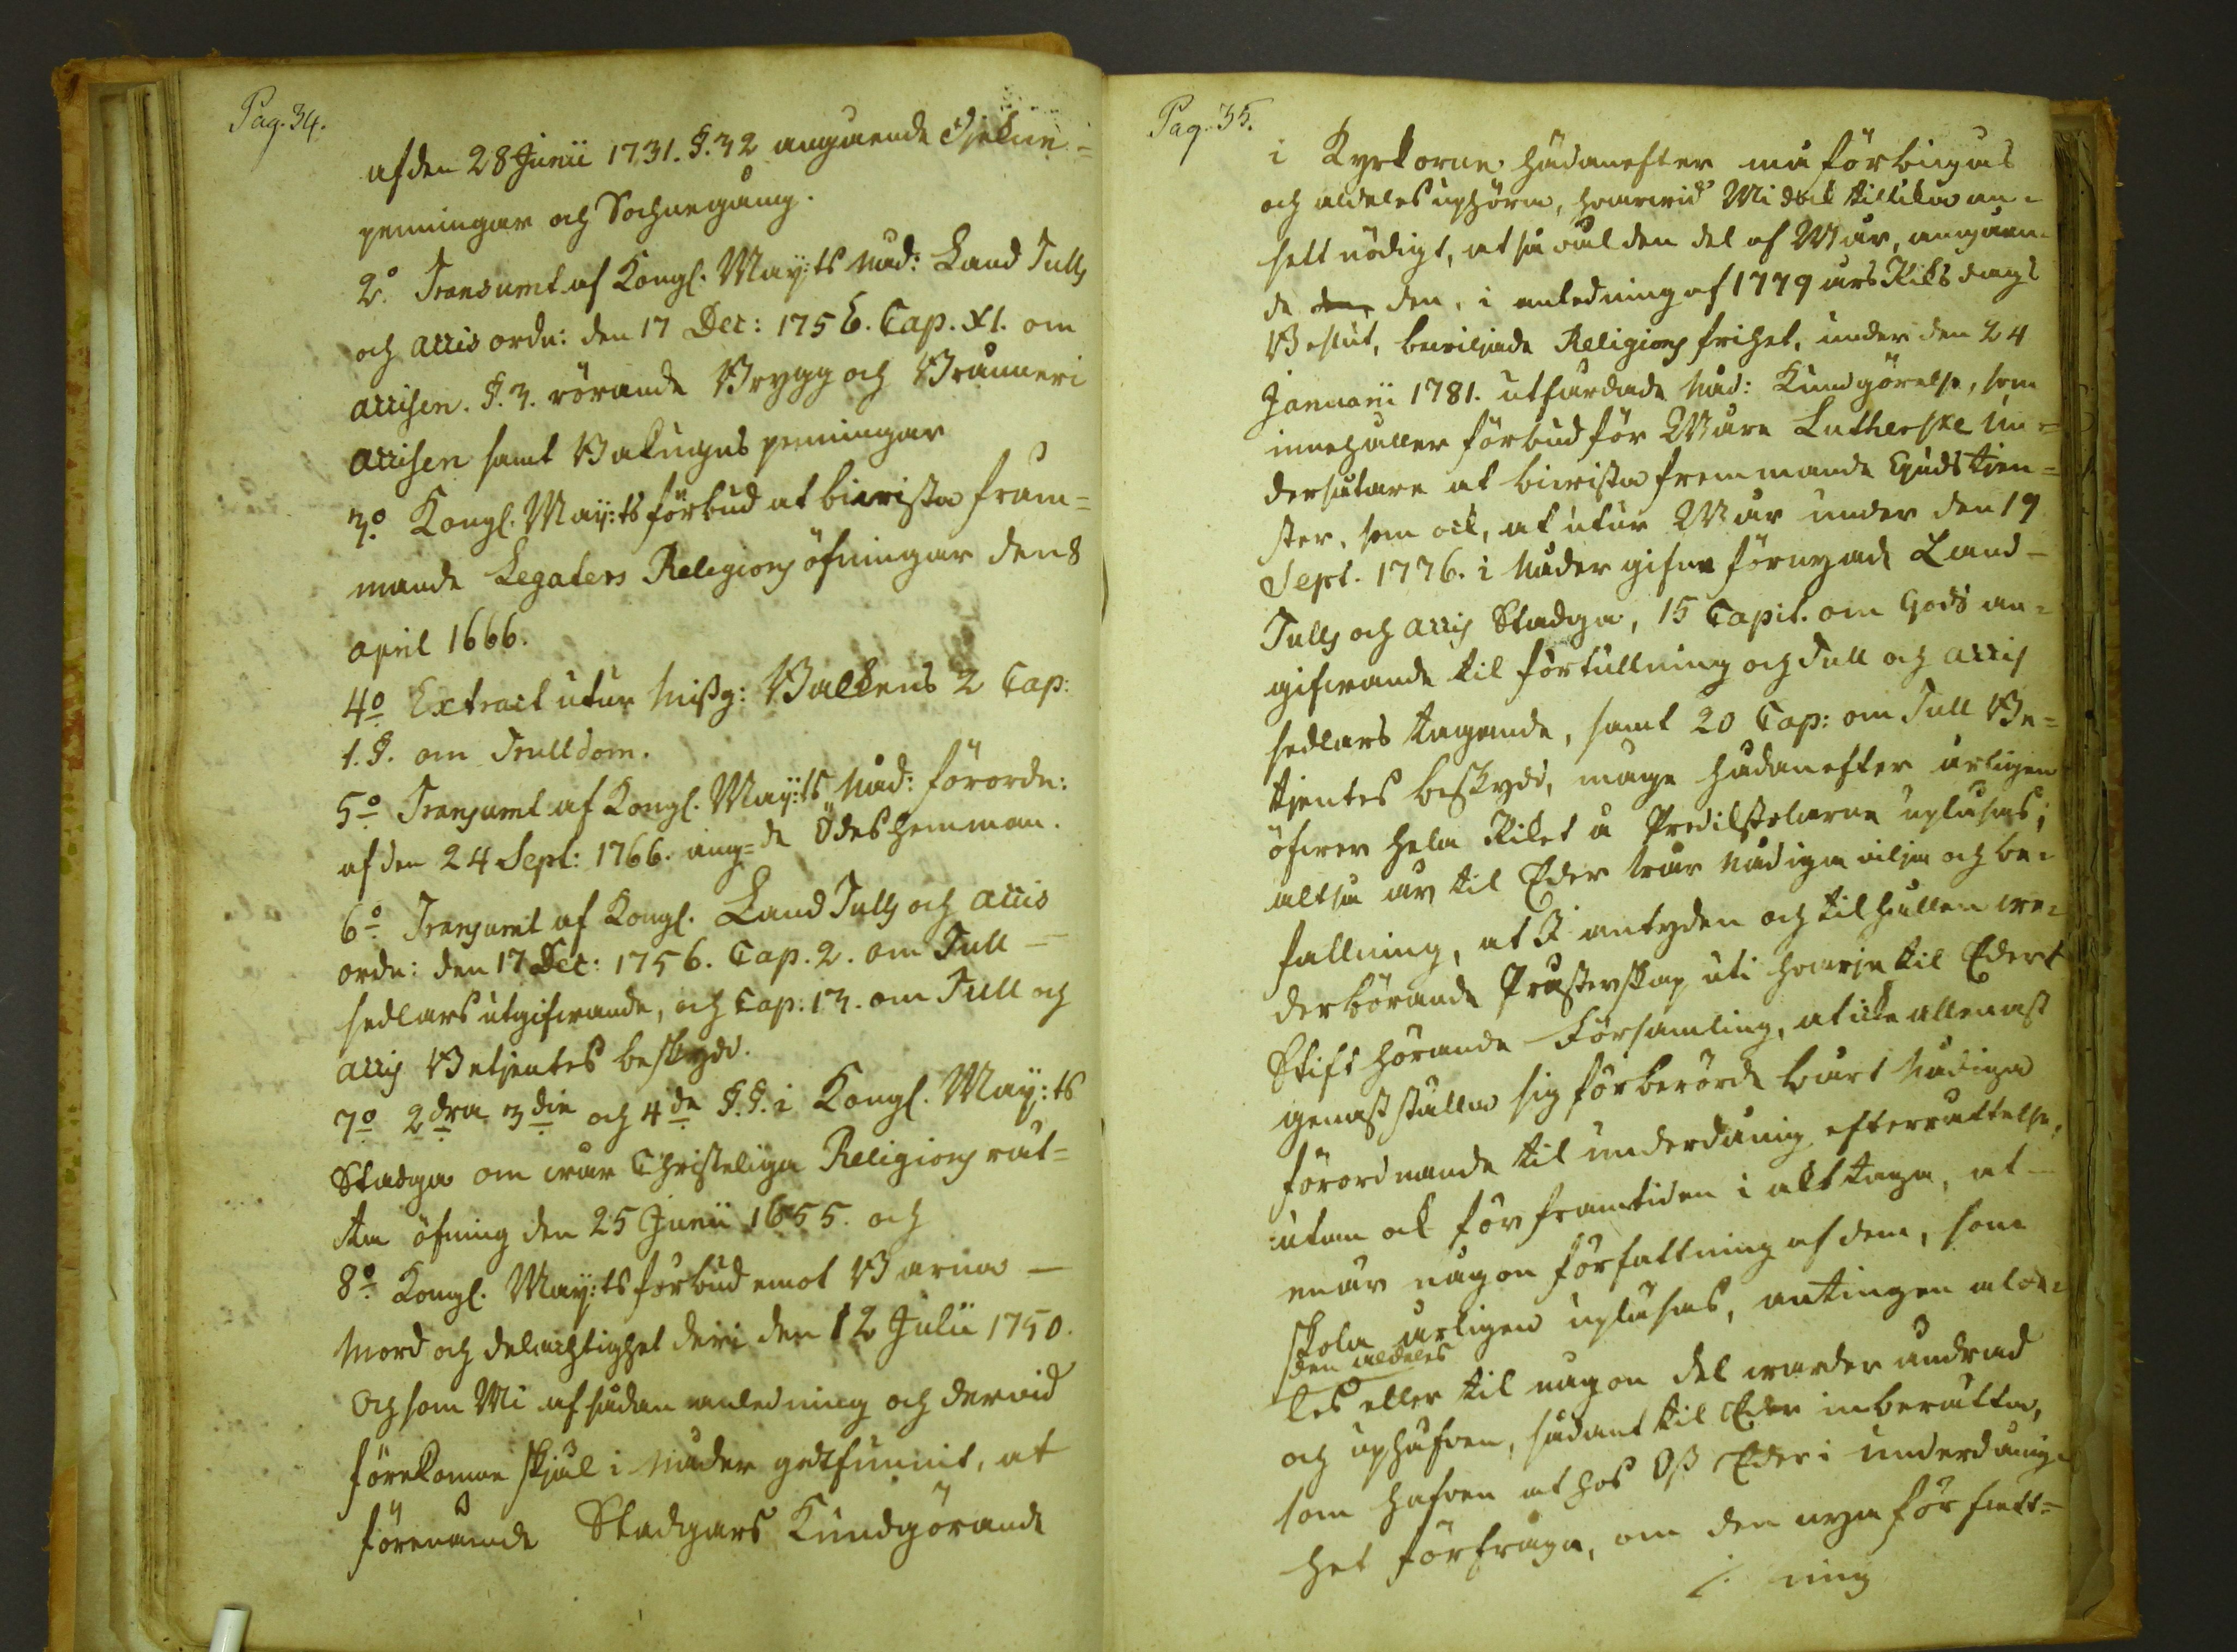 Pag. 34.
af den 28 Junii 1731. §. 32 angaende Djekne-
penningar och Sochnegång.
2o. Transumt af Kongl. May:ts Nåd: Land Tulls
och accis ordn: den 17 Dec: 1756. Cap. XI. om
accisen. §. 3. rörande Brygg och Bränneri
accisen samt Bakugns penningar
3o. Kongl. May:ts förbud at bivista främ=
mande Legaters Religions öfningar den 8
april 1666.
4o Extract utur Missg: Balkens 2 Cap:
1. §. om Trulldom.
5o Transumt af Kongl. May:ts Nåd: förordn:
af den 24 Sept: 1766. ang=de Ödeshemman.
6o Transumt af Kongl. Land Tulls och accis
ordn: den 17 Dec: 1756. Cap. 2. om Tull-
sedlars utgifvande, och Cap. 13. om Tull och
accis Betjentes beskydd.
7o 2dra 3die och 4de §.§. i Kongl. May:ts
Stadga om wår Christeliga Religions rät=
ta öfning den 25 Junii 1655. och
8o Kongl. May:ts förbud emot Barna-
Mord och delachtighet deri den 12 Julii 1750.
Och som Wi af sådan anledning och dervid
förekomne skjäl i Nåder godtfunnit, at
förenämde Stadgars Kundgörande
Pag. 35.
i Kyrkorne hädanefter må förbigås
och aldeles uphöra, hvarvid Wi dock tillika an-
sett nödigt, at så väl den del af Wår, angåen-
de den, i anledning af 1779 års Riksdags
Beslut, beviljade Religions frihet, under den 24
Januarii 1781. utfärdade Nåd: Kundgörelse, som
innehåller förbud för Wåre Lutherske Un=
dersåtare at bivista fremmande Gudstjen=
ster, som ock, at utur Wår under den 19
Sept. 1776. i Nåder gifne förnyade Land-
Tulls och accis Stadga, 15 Capit. om Gods an=
gifvande til förtullning och Tull och accis
sedlars tagande, samt 20 Cap: om Tull Be=
tjentes beskydd, måge hädanefter årligen
öfver hela Riket å Predikstolarne upläsas;
altså är til Eder Wår Nådiga vilja och be-
fallning, at I antyden och tilhållen we-
derbörande Prästerskap uti hvarje til Edert
Stift hörande Församling, at icke allenast
genast ställa sig förberörde Wårt Nådiga
förordnande til underdånig efterrättelse,
utan ock för framtiden i akt taga, at-
enär någon författning af dem, som
skola årligen upläsas, antingen alde-
den aldeles
les eller til någon del warder ändrad
och uphäfven, sådant til Eder inberätta,
som hafven at hos Oss Eder i underdånig-
het förfråga, om den nya författ=
/. ning